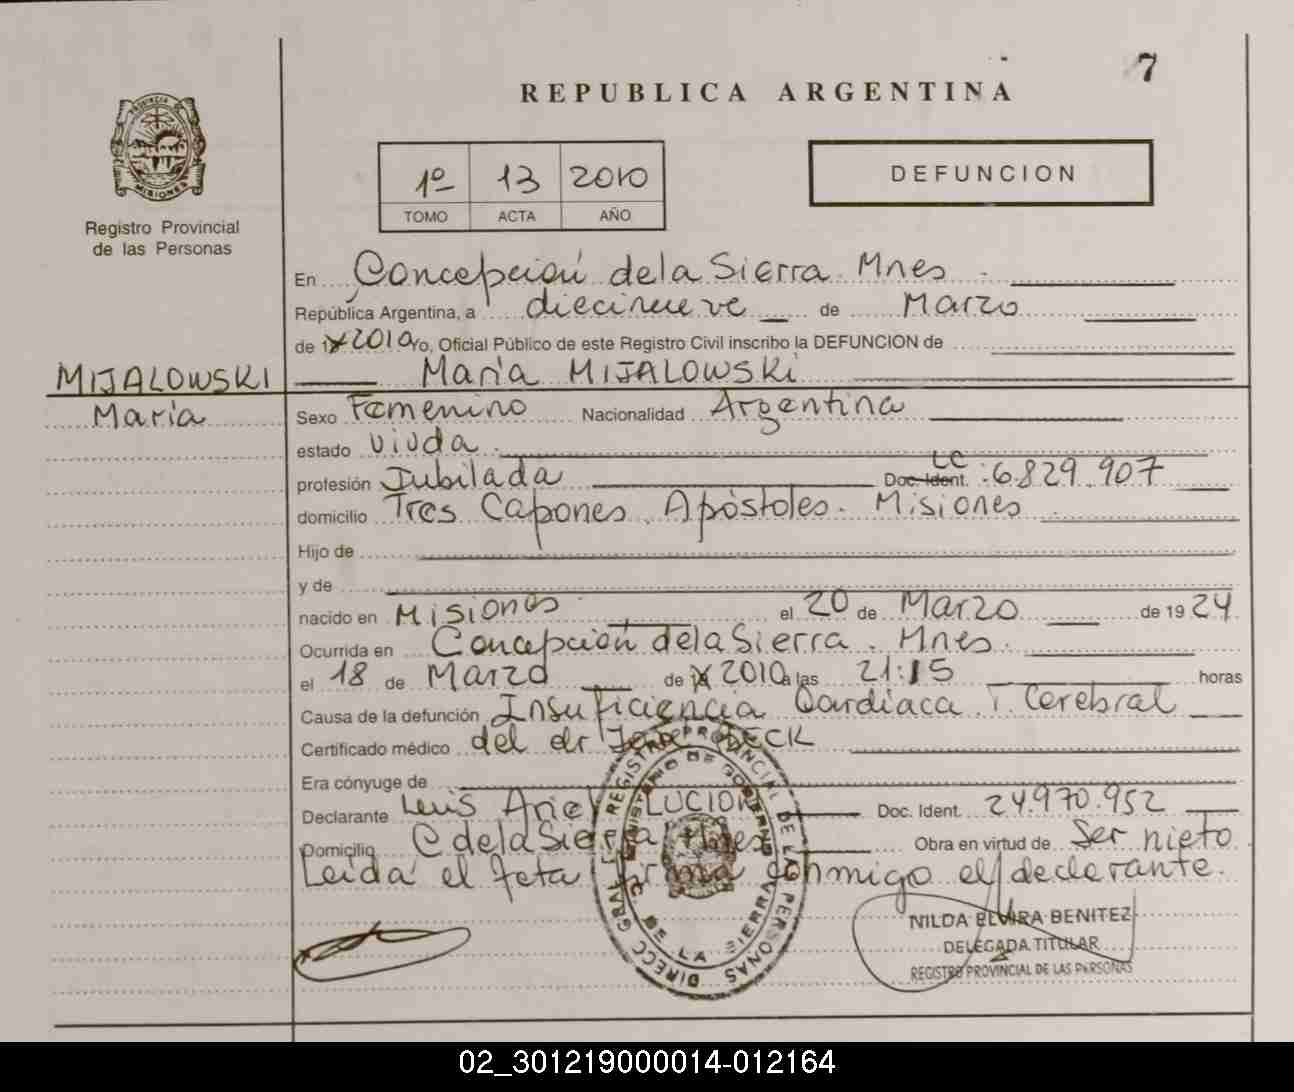 7
REPUBLICA ARGENTINA
PROVINCIA DE MISIONES
Registro Provincial
de las Personas
1º 13 2010
TOMO ACTA AÑO
DEFUNCION
En Concepción de la Sierra. Mnes.
República Argentina, a diecinueve de Marzo
de 2010 Yo, Oficial Público de este Registro Civil inscribo la DEFUNCION de
MIJALOWSKI María MIJALOWSKI
María
Sexo Femenino Nacionalidad Argentina
estado Viuda.
profesión Jubilada Doc. Ident. LC : 6.829.907
domicilio Tres Capones. Apóstoles. Misiones
Hijo de
y de
nacido en Misiones. el 20 de Marzo de 1924
Ocurrida en Concepción de la Sierra. Mnes.
el 18 de Marzo de 2010 a las 21:15 horas
Causa de la defunción Insuficiencia Cardiaca. Cerebral
Certificado médico del dr
Era cónyuge de
Declarante Luis Ariel Doc. Ident. 24.970.952
Domicilio C de la Sierra Mnes Obra en virtud de Ser nieto
Leida el acta firma conmigo el declarante.
DIRECC GRAL REGISTRO PROVINCIAL DE LAS PERSONAS
MINISTERIO DE GOBIERNO
DE LA SIERRA
NILDA ELVIRA BENITEZ
DELEGADA TITULAR
REGISTRO PROVINCIAL DE LAS PERSONAS
02_301219000014-012164